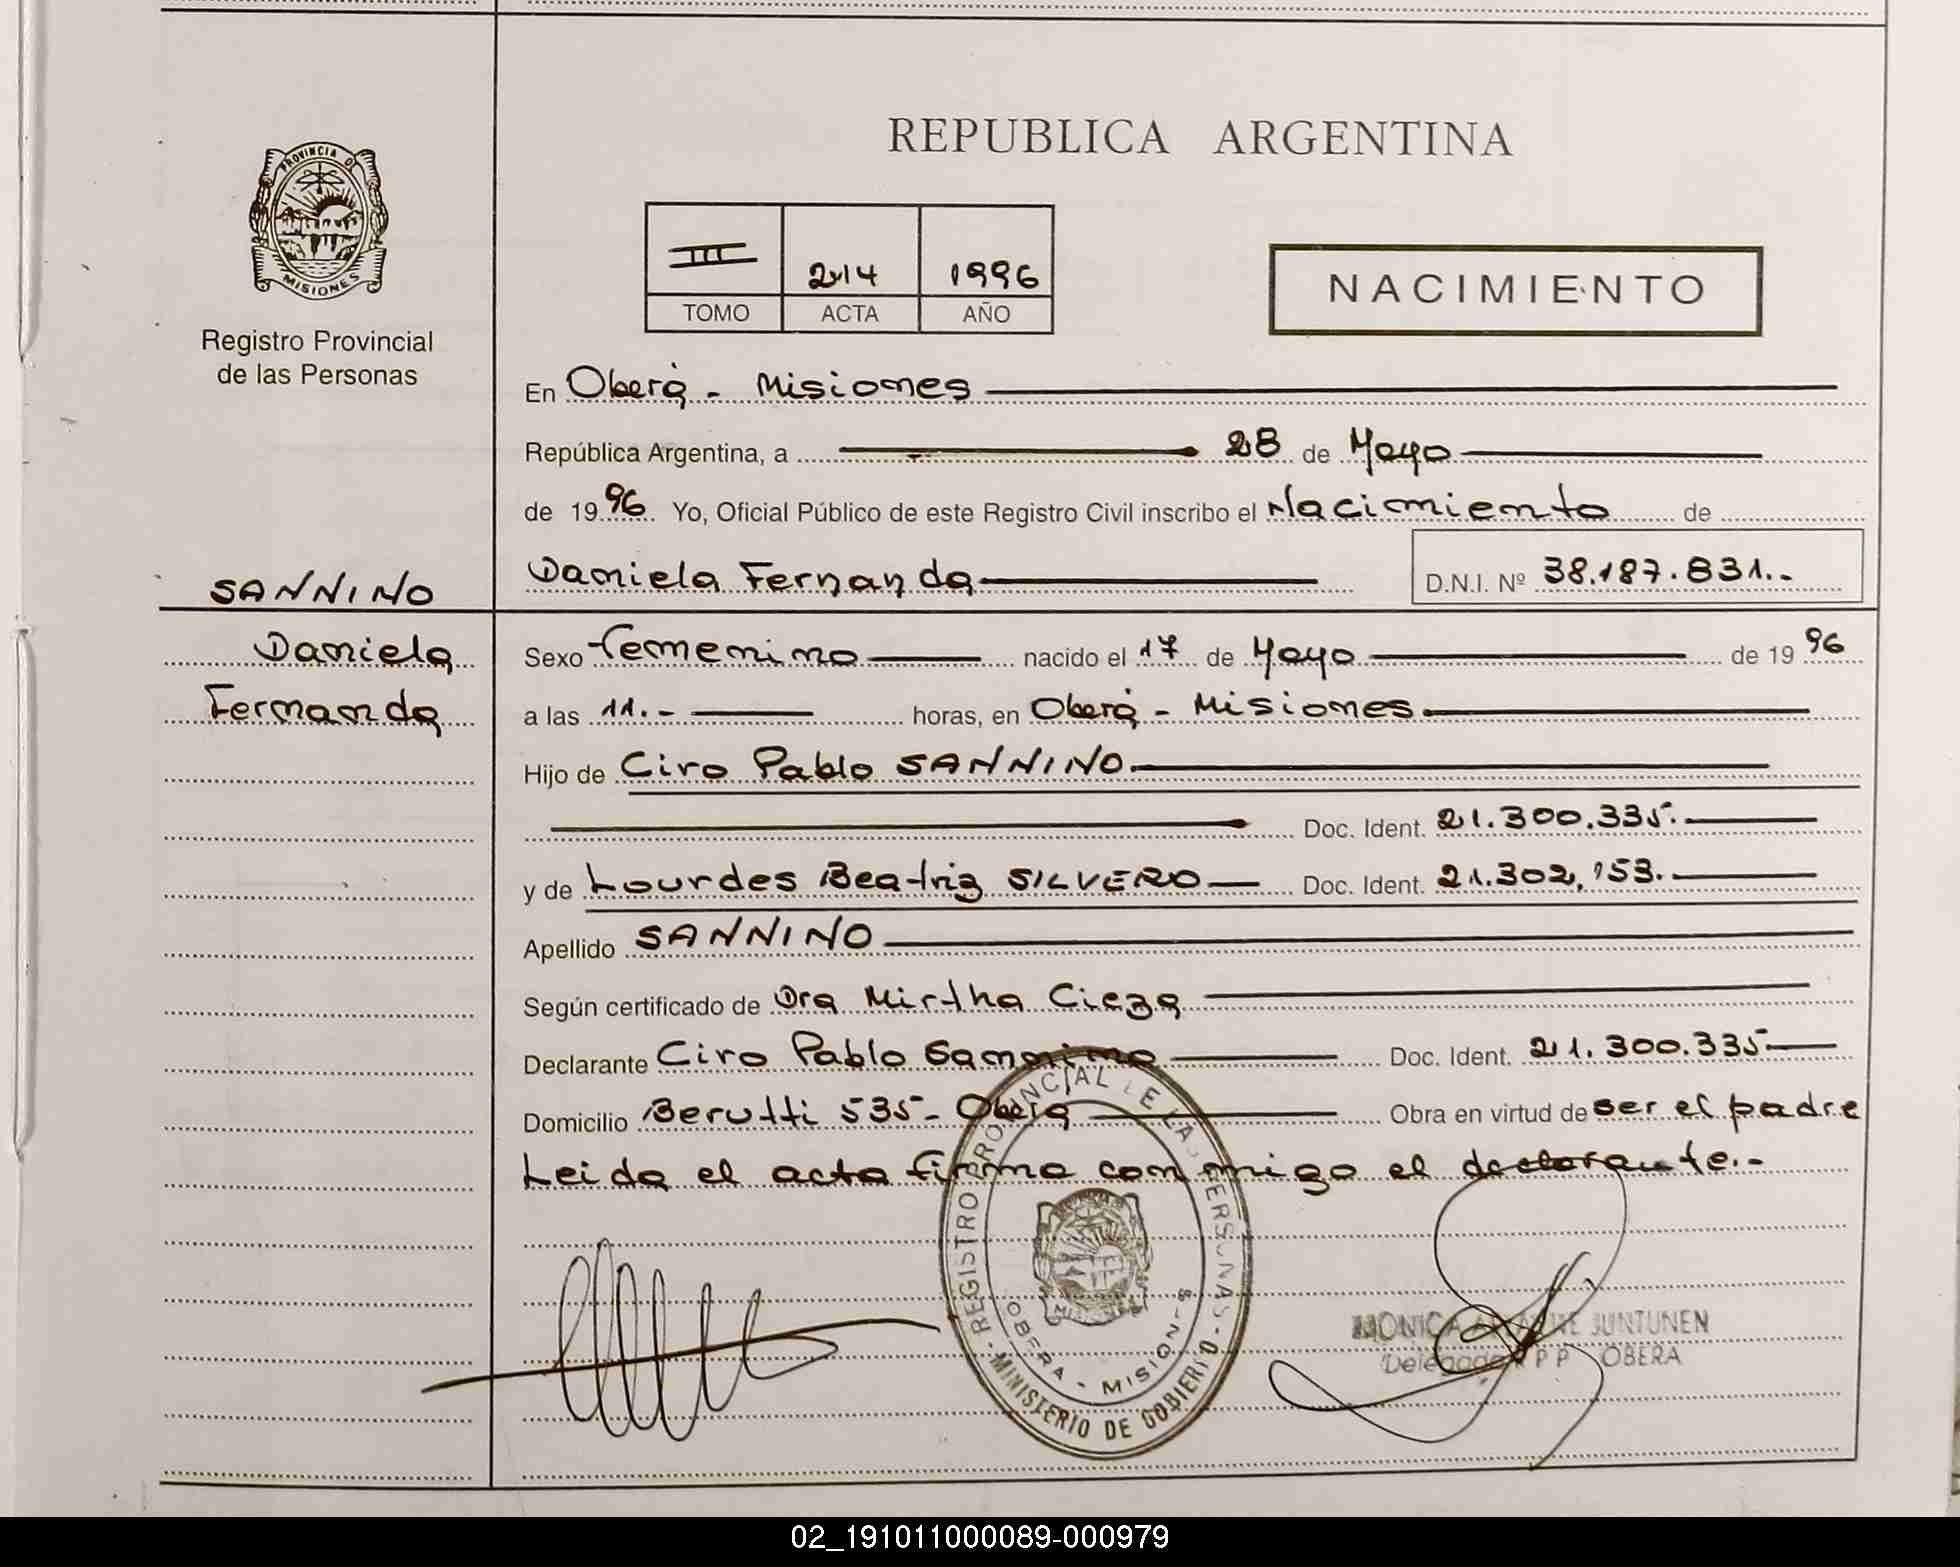 REPUBLICA ARGENTINA
PROVINCIA DE
MISIONES
Registro Provincial
de las Personas
III 214 1996
TOMO ACTA AÑO
NACIMIENTO
En Oberá - Misiones
República Argentina, a 28 de Mayo
de 1996 Yo, Oficial Público de este Registro Civil inscribo el Nacimiento de
Daniela Fernanda D.N.I. Nº 38.187.831.-
SANNINO
Daniela
Fernanda
Sexo Femenino nacido el 17 de Mayo de 1996
a las 11.- horas, en Oberá - Misiones
Hijo de Ciro Pablo SANNINO
Doc. Ident. 21.300.335.
y de Lourdes Beatriz SILVERO Doc. Ident. 21.302,153.
Apellido SANNINO
Según certificado de Dra Mirtha Cieza
Declarante Ciro Pablo Sannino Doc. Ident. 21.300.335
Domicilio Berutti 535- Oberá Obra en virtud de ser el padre
Leida el acta firma conmigo el declarante.-
REGISTRO PROVINCIAL DE LAS PERSONAS
OBERA - MISIONES
MINISTERIO DE GOBIERNO
MONICA JUNTUNEN
Delegada OBERA
02_191011000089-000979